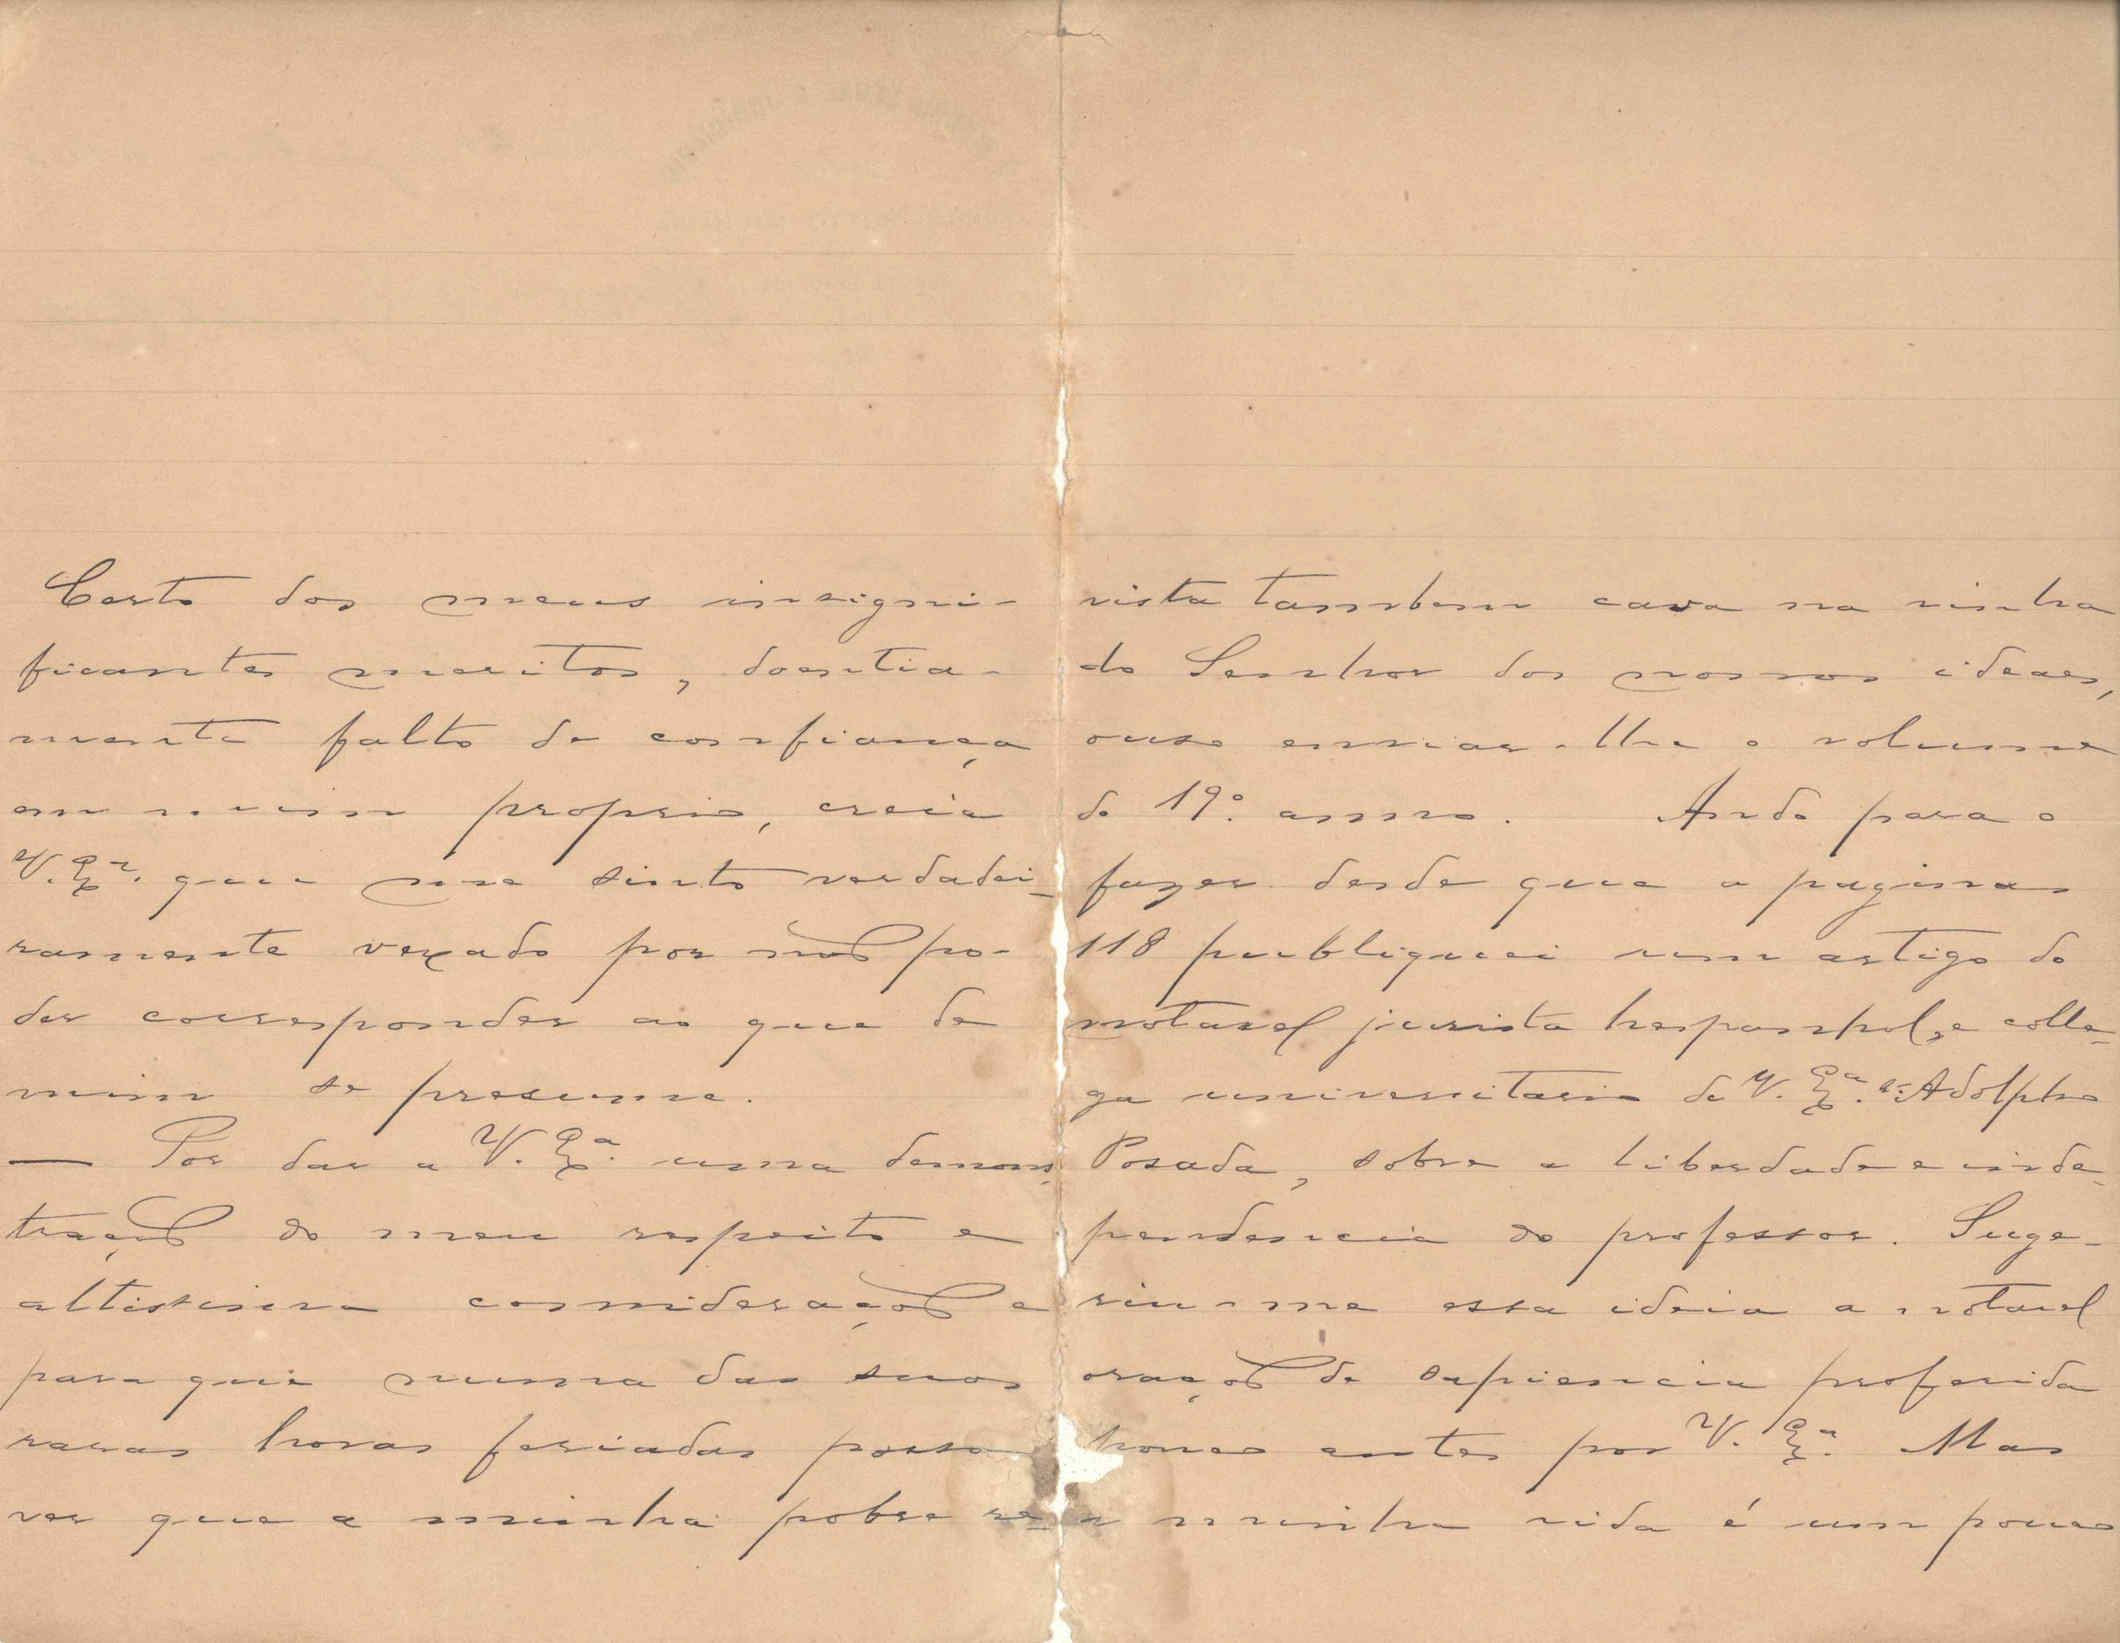 Certo dos meus insigni-
ficantes meritos, doentia-
mente falto de confiança
em mim proprio, creia
V. Exª. que me sinto verdadei-
ramente vexado por não po-
der corresponder ao que de
mim se presume.
— Por dar a V. Exª. uma demons-
tração do meu respeito e
altissima consideração e
para que numa das suas
raras horas feriadas possa
ver que a minha pobre re-
vista tambem cava na vinha
do Senhor dos nossos ideaes,
ouso enviar-lhe o volume
do 19º. anno. Ando para o
fazer desde que a paginas
118 publiquei um artigo do
notavel jurista hespanhol, e colle-
ga universitario de V. Exª. sr. Adolpho
Posada, sobre a liberdade e inde-
pendencia do professor. Suge-
riu-me essa ideia a notavel
oração de sapiencia proferida
pouco antes por V. Exª. Mas
a minha vida é um pouco